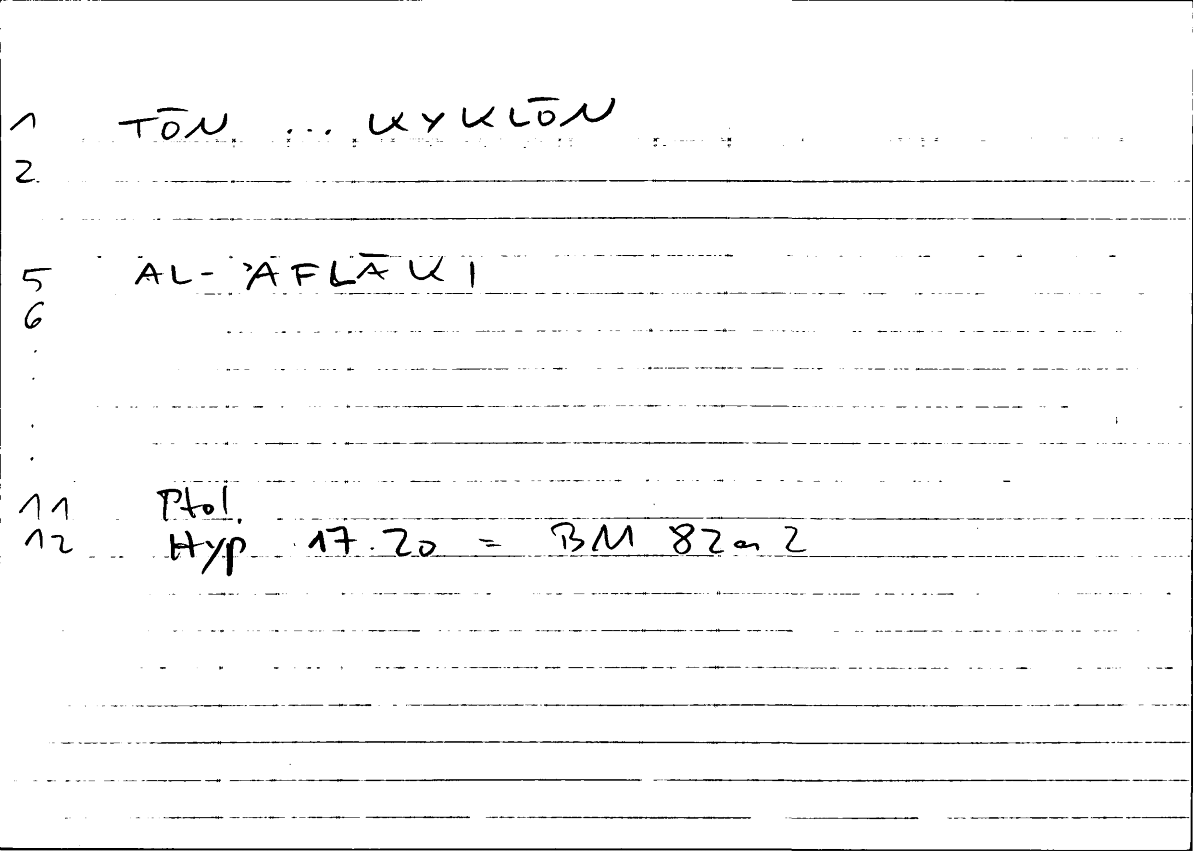 1 TŌN ... KYKLŌN
2.
5 AL-ʾAFLĀKI
6
.
.
.
.
11 Ptol.
12 Hyp 17.20 = BM 82a2